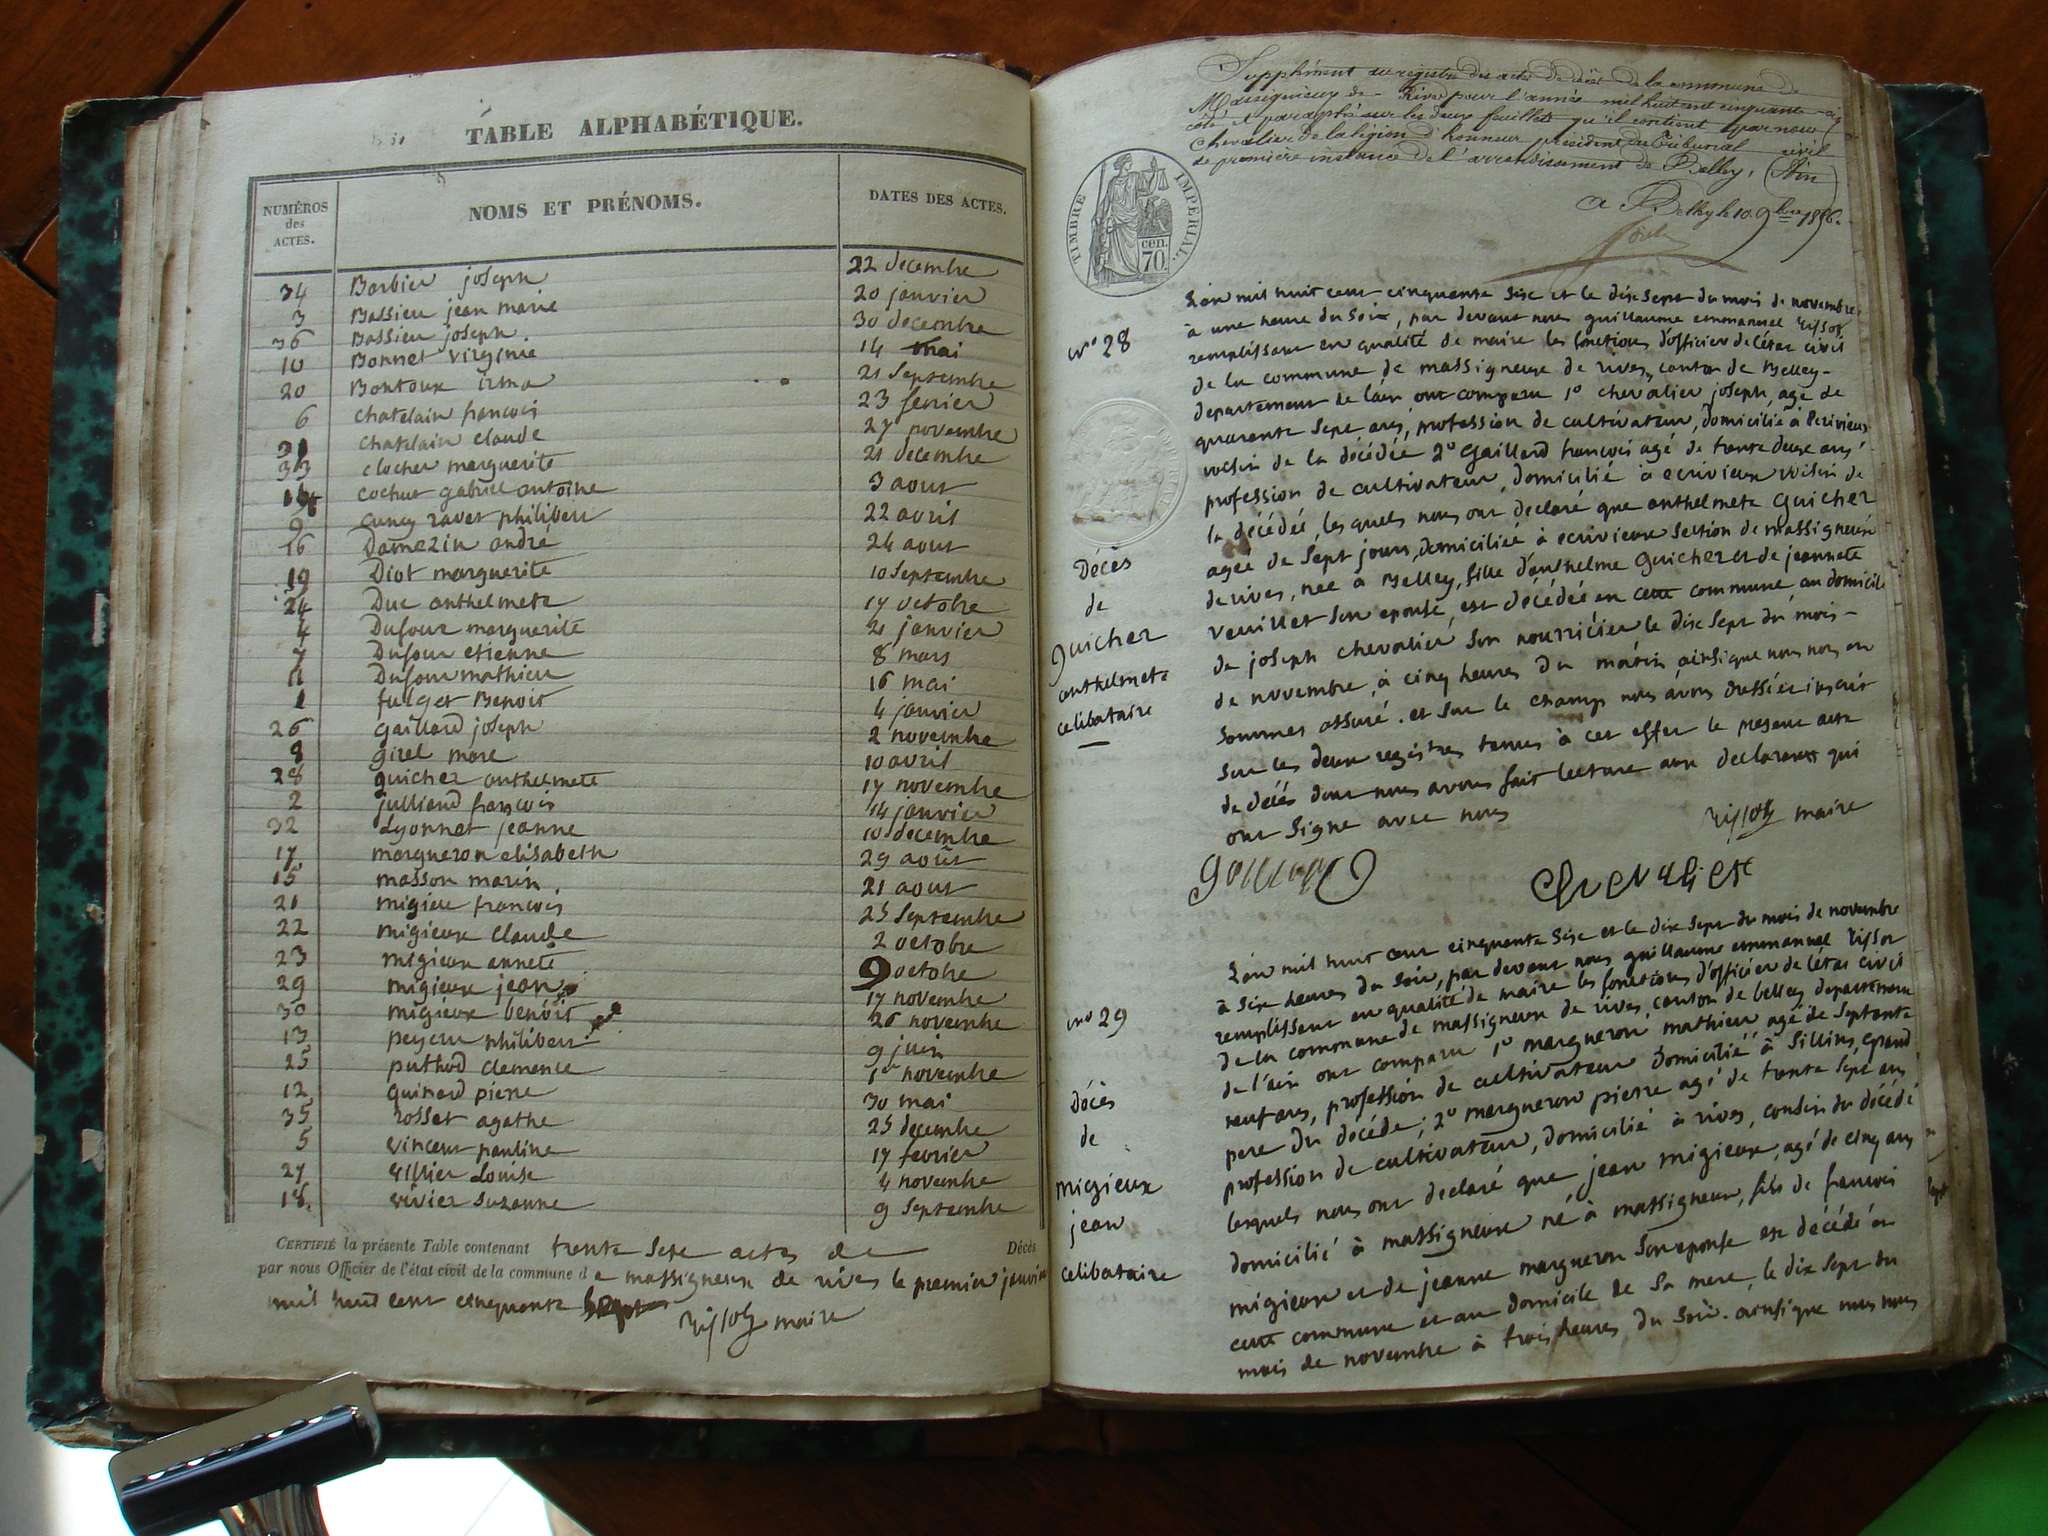 TABLE ALPHABÉTIQUE.
NUMÉROS des ACTES.
NOMS ET PRÉNOMS.
DATES DES ACTES.
34 Barbier joseph 22 decembre
3 Bassieu jean marie 20 janvier
36 Bassieu joseph 30 decembre
10 Bonnet virginie 14 mai
20 Bontoux irma 21 Septembre
6 chatelain francois 23 fevrier
31 chatelain claude 27 novembre
33 clocher marguerite 21 decembre
14 cochet gabriel antoine 3 aout
9 cuney ravet philibert 22 avril
16 Damezin andré 24 aout
19 Diot marguerite 10 Septembre
24 Duc anthelmete 17 octobre
4 Dufour marguerite 21 janvier
7 Dufour etienne 8 mars
11 Dufour mathieu 16 mai
1 fulget Benoit 4 janvier
26 gaillard joseph 2 novembre
8 girel marc 10 avril
28 guicher anthelmete 17 novembre
2 julliand francois 14 janvier
32 Lyonnet jeanne 10 decembre
17 margueron elisabeth 29 août
15 masson marin 21 aout
21 migieu francois 25 Septembre
22 migieux claude 2 octobre
23 migieux annete 9 octobre
29 migieux jean 17 novembre
30 migieux benoit 26 novembre
13 peyeur philibert 9 juin
25 puthod clemence 1er novembre
12 quinard pierre 30 mai
35 rosset agathe 25 decembre
5 vincent pauline 17 fevrier
27 villier Louise 4 novembre
18 vivier Suzanne 9 Septembre
CERTIFIÉ la présente Table contenant trente Sixe actes de Décès
par nous Officier de l'état civil de la commune de massigneux de rives le premier janvier
mil huit cent cinquante Sept maire
Supplément au registre des actes de décès de la commune de
Massignieux de Rives pour l'année mil huit cent cinquante six
coté et paraphé sur les deux feuillets qu'il contient par nous
chevalier de la légion d'honneur président du Tribunal civil
de première instance de l'arrondissement de Belley, (Ain)
a Belley le 10 9bre 1856.
TIMBRE IMPERIAL.
70 cen.
n° 28
Décès
de
guicher
anthelmete
celibataire
L'an mil huit cent cinquante Sixe et le dix Sept du mois de novembre
à une heure du Soir, par devant nous guillaume emmanuel
remplissant en qualité de maire les fonctions d'officier de l'état civil
de la commune de massigneux de rives, canton de Belley
departement de l'ain ont comparu 1° chevalier joseph, agé de
quarante Sept ans, profession de cultivateur, domicilié à
voisin de la décédée 2° gaillard francois agé de trente deux ans
profession de cultivateur, domicilié à ecrivieux voisin de
la décédée, lesquels nous ont declaré que anthelmete guicher
agée de Sept jours, domiciliée à ecrivieux Section de massigneux
de rives, née à Belley, fille d'anthelme guicher et de jeannete
veuillet Son epouse, est décédée en cette commune au domicile
de joseph chevalier Son nourricier le dix Sept du mois
de novembre, à cinq heures du matin ainsi que nous nous en
Sommes assuré. et Sur le champ nous avons dressé et inscrit
Sur les deux registres tenus à cet effet le present acte
de décés dont nous avons fait lecture aux declarants qui
ont Signé avec nous
maire
Chevalier
n° 29
Décès
de
migieux
jean
celibataire
L'an mil huit cent cinquante Sixe et le dix Sept du mois de novembre
à Sixe heures du Soir, par devant nous guillaume emmanuel
remplissant en qualité de maire les fonctions d'officier de l'état civil
de la commune de massigneux de rives, canton de belley departement
de l'ain ont comparu 1° margueron mathieu agé de Septante
neuf ans, profession de cultivateur domicilié à Sillins, grand
pere du décédé; 2° margueron pierre agé de trente Sept ans
profession de cultivateur, domicilié à rives, cousin du décédé
lesquels nous ont declaré que jean migieux, agé de cinq ans
domicilié à massigneux né à massigneux, fils de francois
migieux et de jeanne margueron Son epouse est décédé en
cette commune et au domicile de Sa mere, le dix Sept du
mois de novembre à trois heures du Soir. ainsi que nous nous